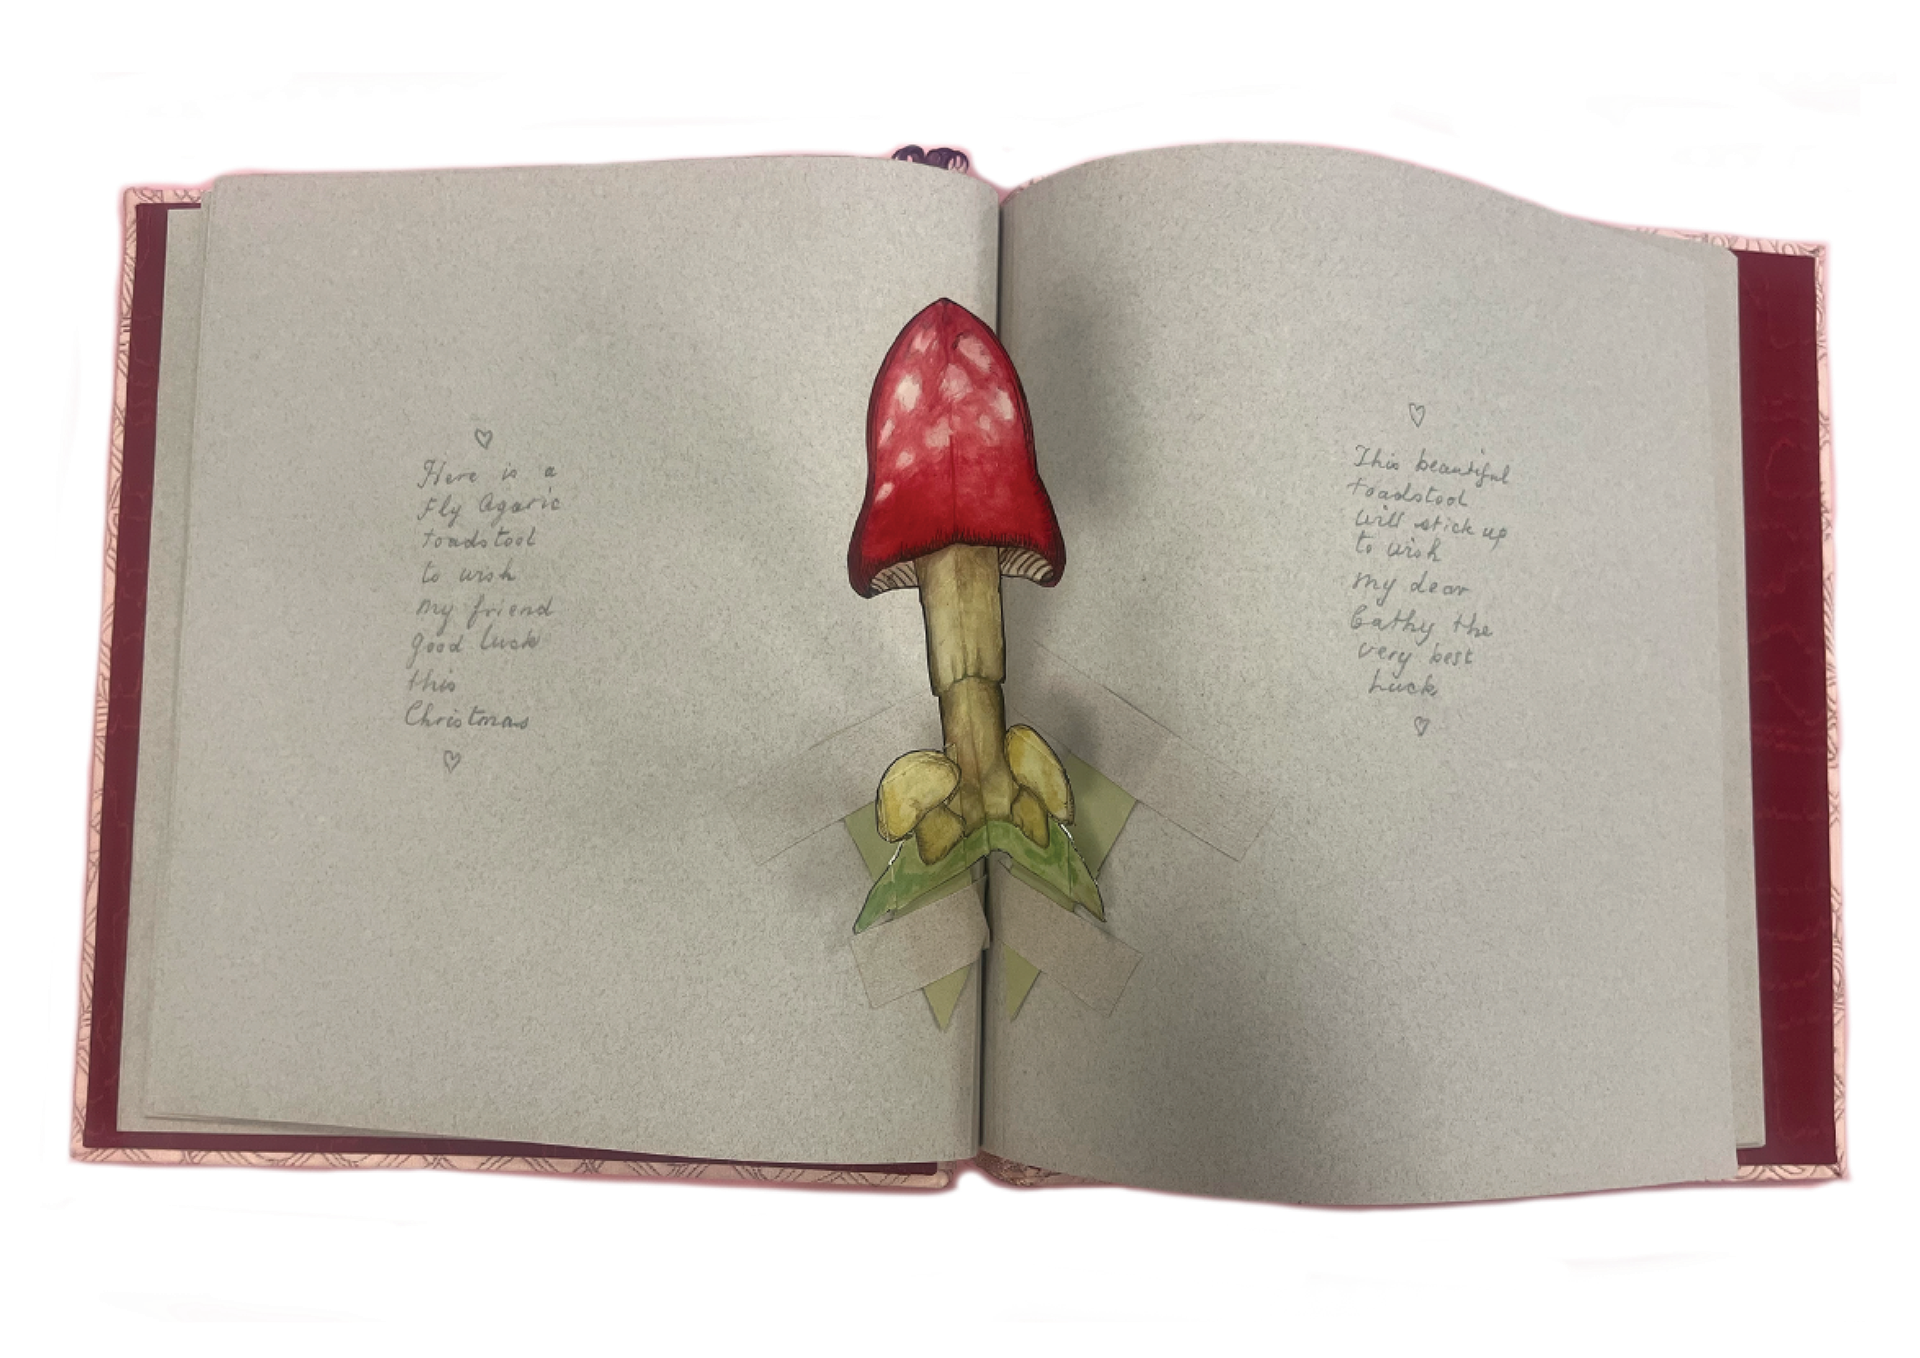 Here is a
Fly Agaric
toadstool
to wish
my friend
good luck
this
Christmas
This beautiful
toadstool
will stick up
to wish
my dear
Cathy the
very best
Luck